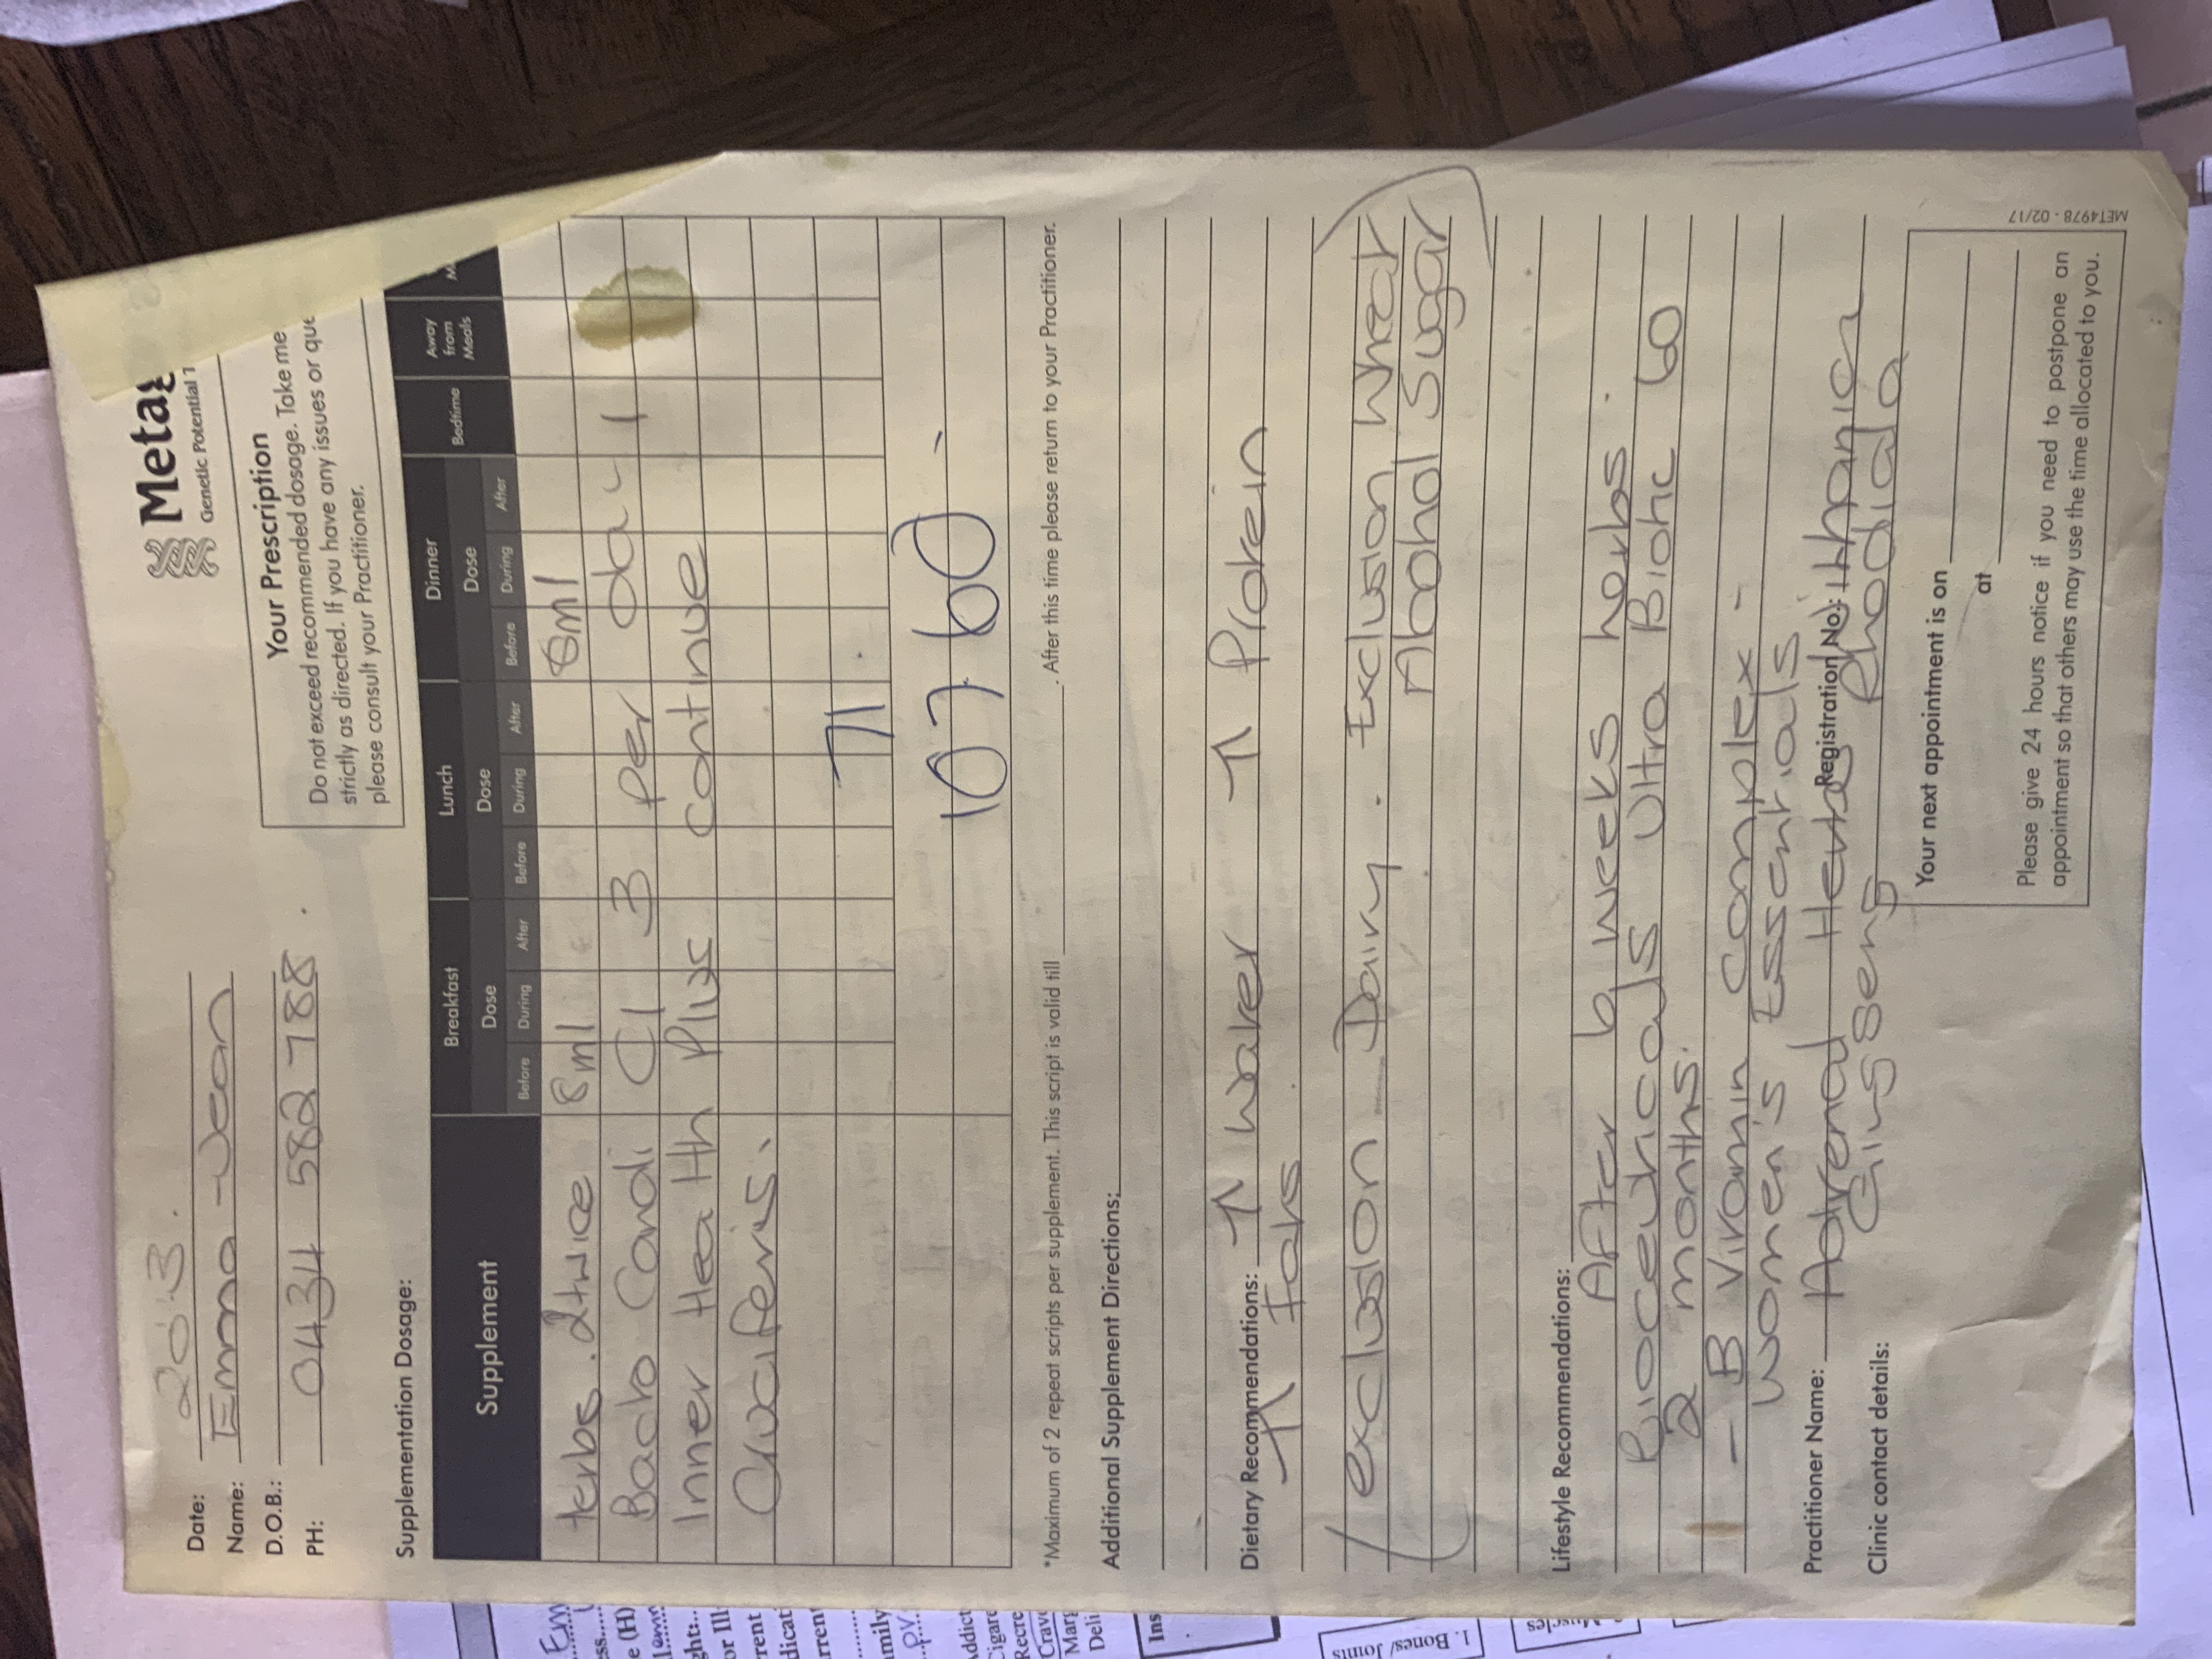 Metag
Genetic Potential T
Date: 20.3.
Name: Emma-Jean
D.O.B.:
PH: 0434 582 788.
Your Prescription
Do not exceed recommended dosage. Take me
strictly as directed. If you have any issues or que
please consult your Practitioner.
Supplementation Dosage:
Supplement Breakfast Lunch Dinner Bedtime Away from Meals M
Dose Dose Dose
Before During After Before During After Before During After
Herbs. 2twice 8ml 8ml
Bacto Candi C1 3 Per day 1
Inner Health Plus continue
Cruciferis.
71.
107.60
*Maximum of 2 repeat scripts per supplement. This script is valid till . After this time please return to your Practitioner.
Additional Supplement Directions:
Dietary Recommendations: ↑ water ↑ Protein
↑ Fats
(exclusion Dairy. Exclusion Wheat
Alcohol Sugar)
Lifestyle Recommendations:
After 6 weeks herbs.
Bioceuticals Ultra Biotic 60
2 months.
- B Vitamin Complex -
women's Essentials
Practitioner Name: Registration No:
Adrenal Herbs: Withania
Ginsseng Rhodiala
Clinic contact details:
Your next appointment is on
at
Please give 24 hours notice if you need to postpone an
appointment so that others may use the time allocated to you.
MET4978 - 02/17
Em
ess....
e (H)
ght:..
or Ill
rrent
dicat
urren
amily
Addict
Cigare
Recre
Crav
Mar
Deli
Ins
1. Bones/ Joints
Muscles